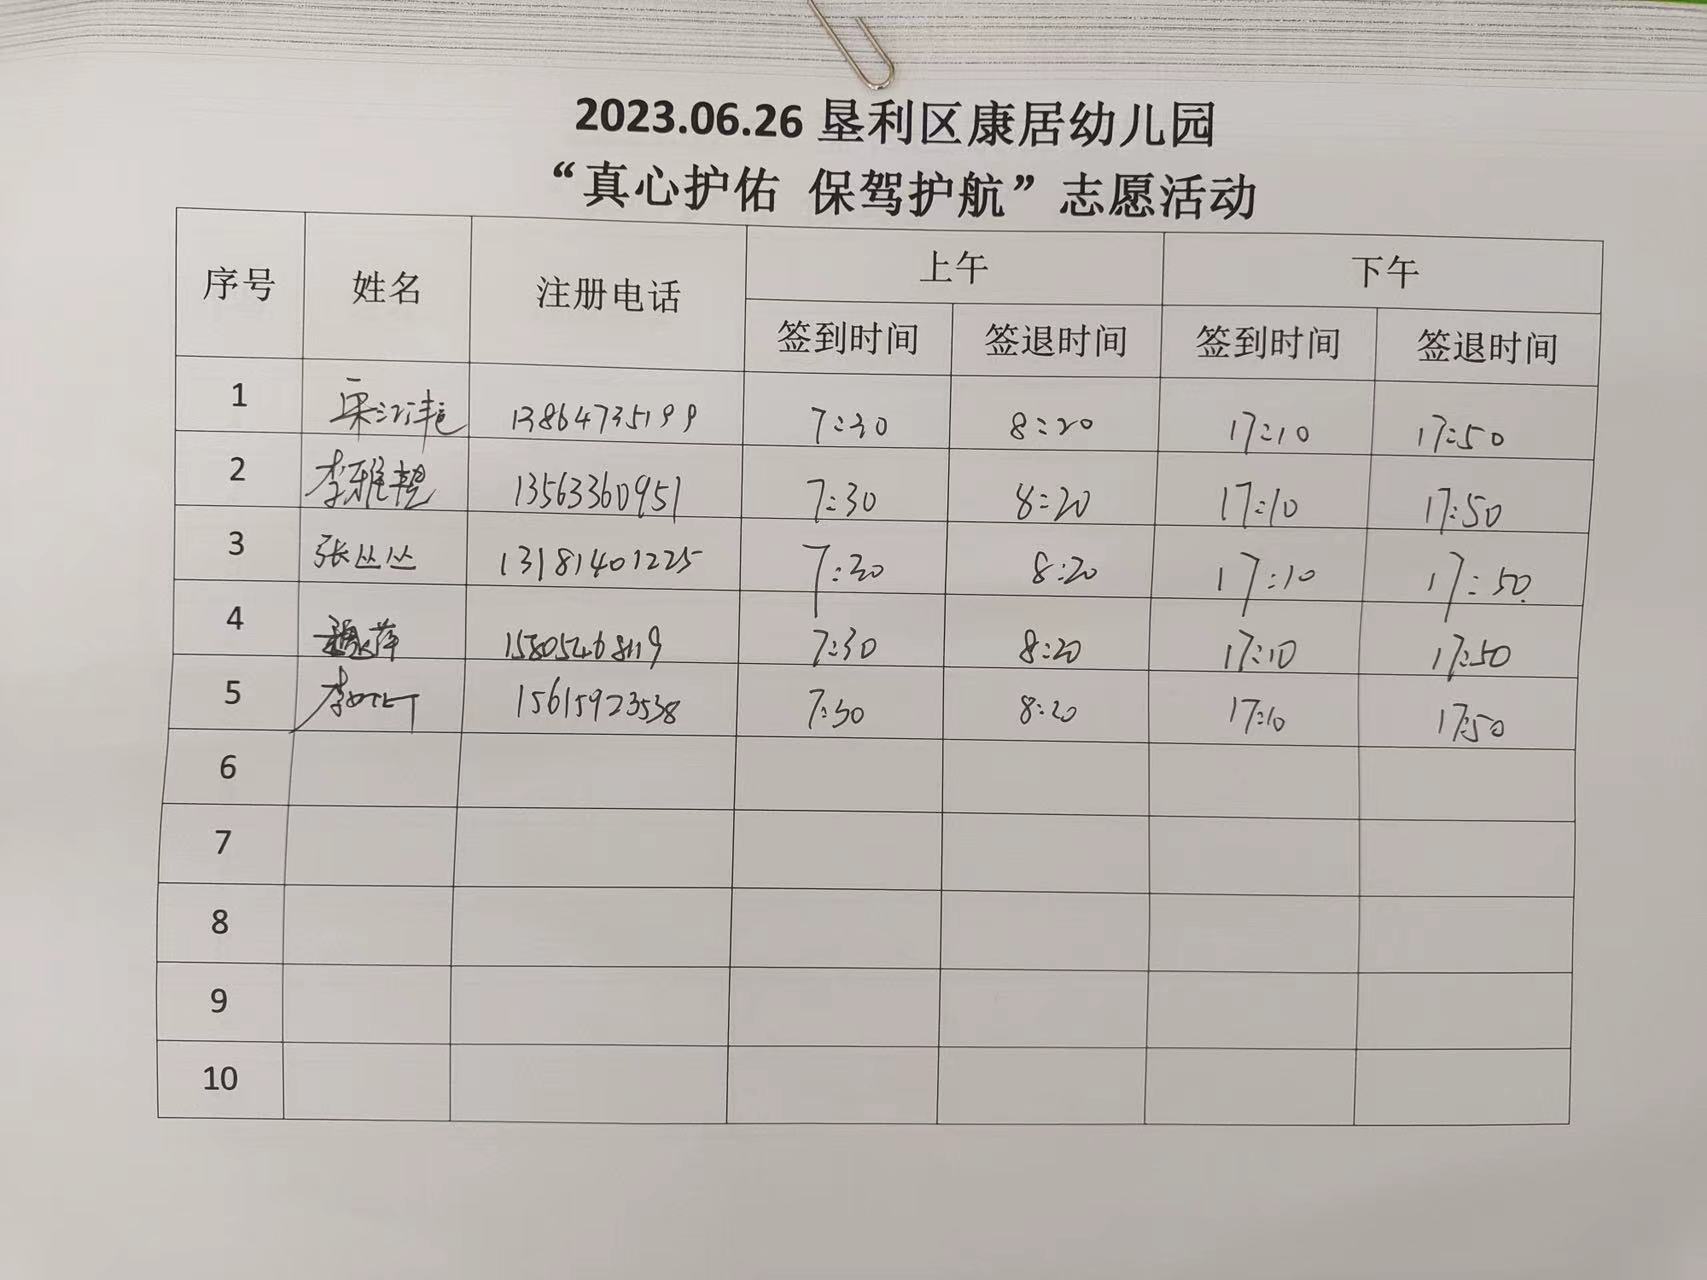 2023.06.26 垦利区康居幼儿园
“真心护佑 保驾护航”志愿活动
序号 姓名 注册电话 上午 下午
签到时间 签退时间 签到时间 签退时间
1 13864735199 7:30 8:20 17:10 17:50
2 李雅 13563360951 7:30 8:20 17:10 17:50
3 张丛丛 13181401225 7:30 8:20 17:10 17:50
4 萍 15805468119 7:30 8:20 17:10 17:50
5 李 15615923538 7:30 8:20 17:10 17:50
6
7
8
9
10